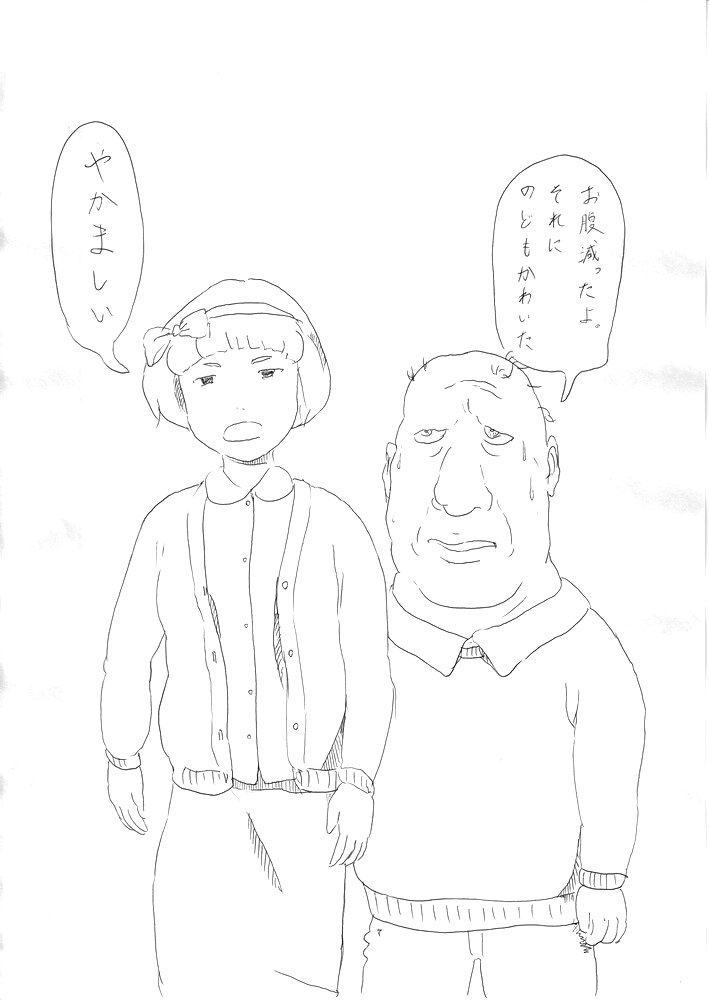 お腹減ったよ。
それに
のどもかわいた
やかましい